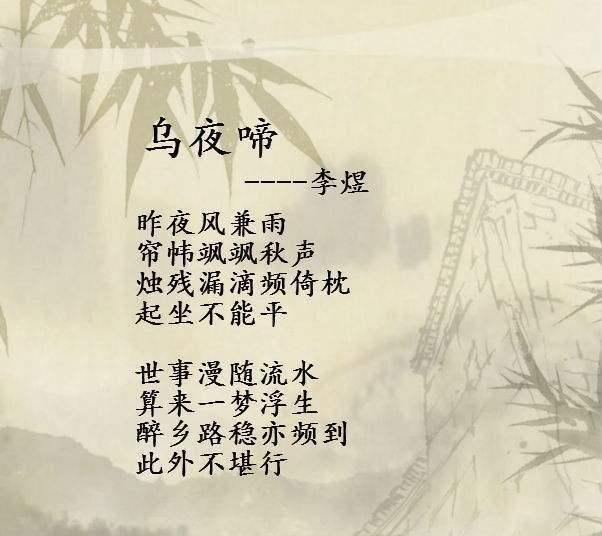 乌夜啼
----李煜
昨夜风兼雨
帘帏飒飒秋声
烛残漏滴频倚枕
起坐不能平
世事漫随流水
算来一梦浮生
醉乡路稳亦频到
此外不堪行